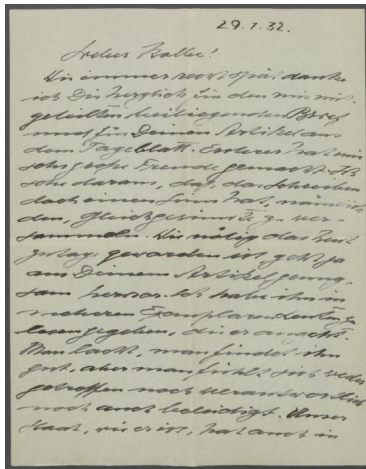 29.1.32.
Lieber Kolle!
Wie immer recht spät danke
ich Dir herzlich für den mir mit-
geteilten beiliegenden Brief
und für Deinen Artikel aus
dem Tageblatt. Ersterer hat mir
sehr große Freude gemacht. Ich
sehe daraus, daß das Schreiben
doch einen Sinn hat, nämlich
den, Gleichgesinnte zu ver-
sammeln. Wie nötig das heut-
zutage geworden ist, geht ja
aus Deinem Artikel genug-
sam hervor. Ich habe ihn in
mehreren Exemplaren Leuten zu
lesen gegeben, die er angeht.
Man lacht, man findet ihn
gut, aber man fühlt sich weder
getroffen noch verantwortlich
noch auch beleidigt. Unser
Staat, wie er ist, hat auch in